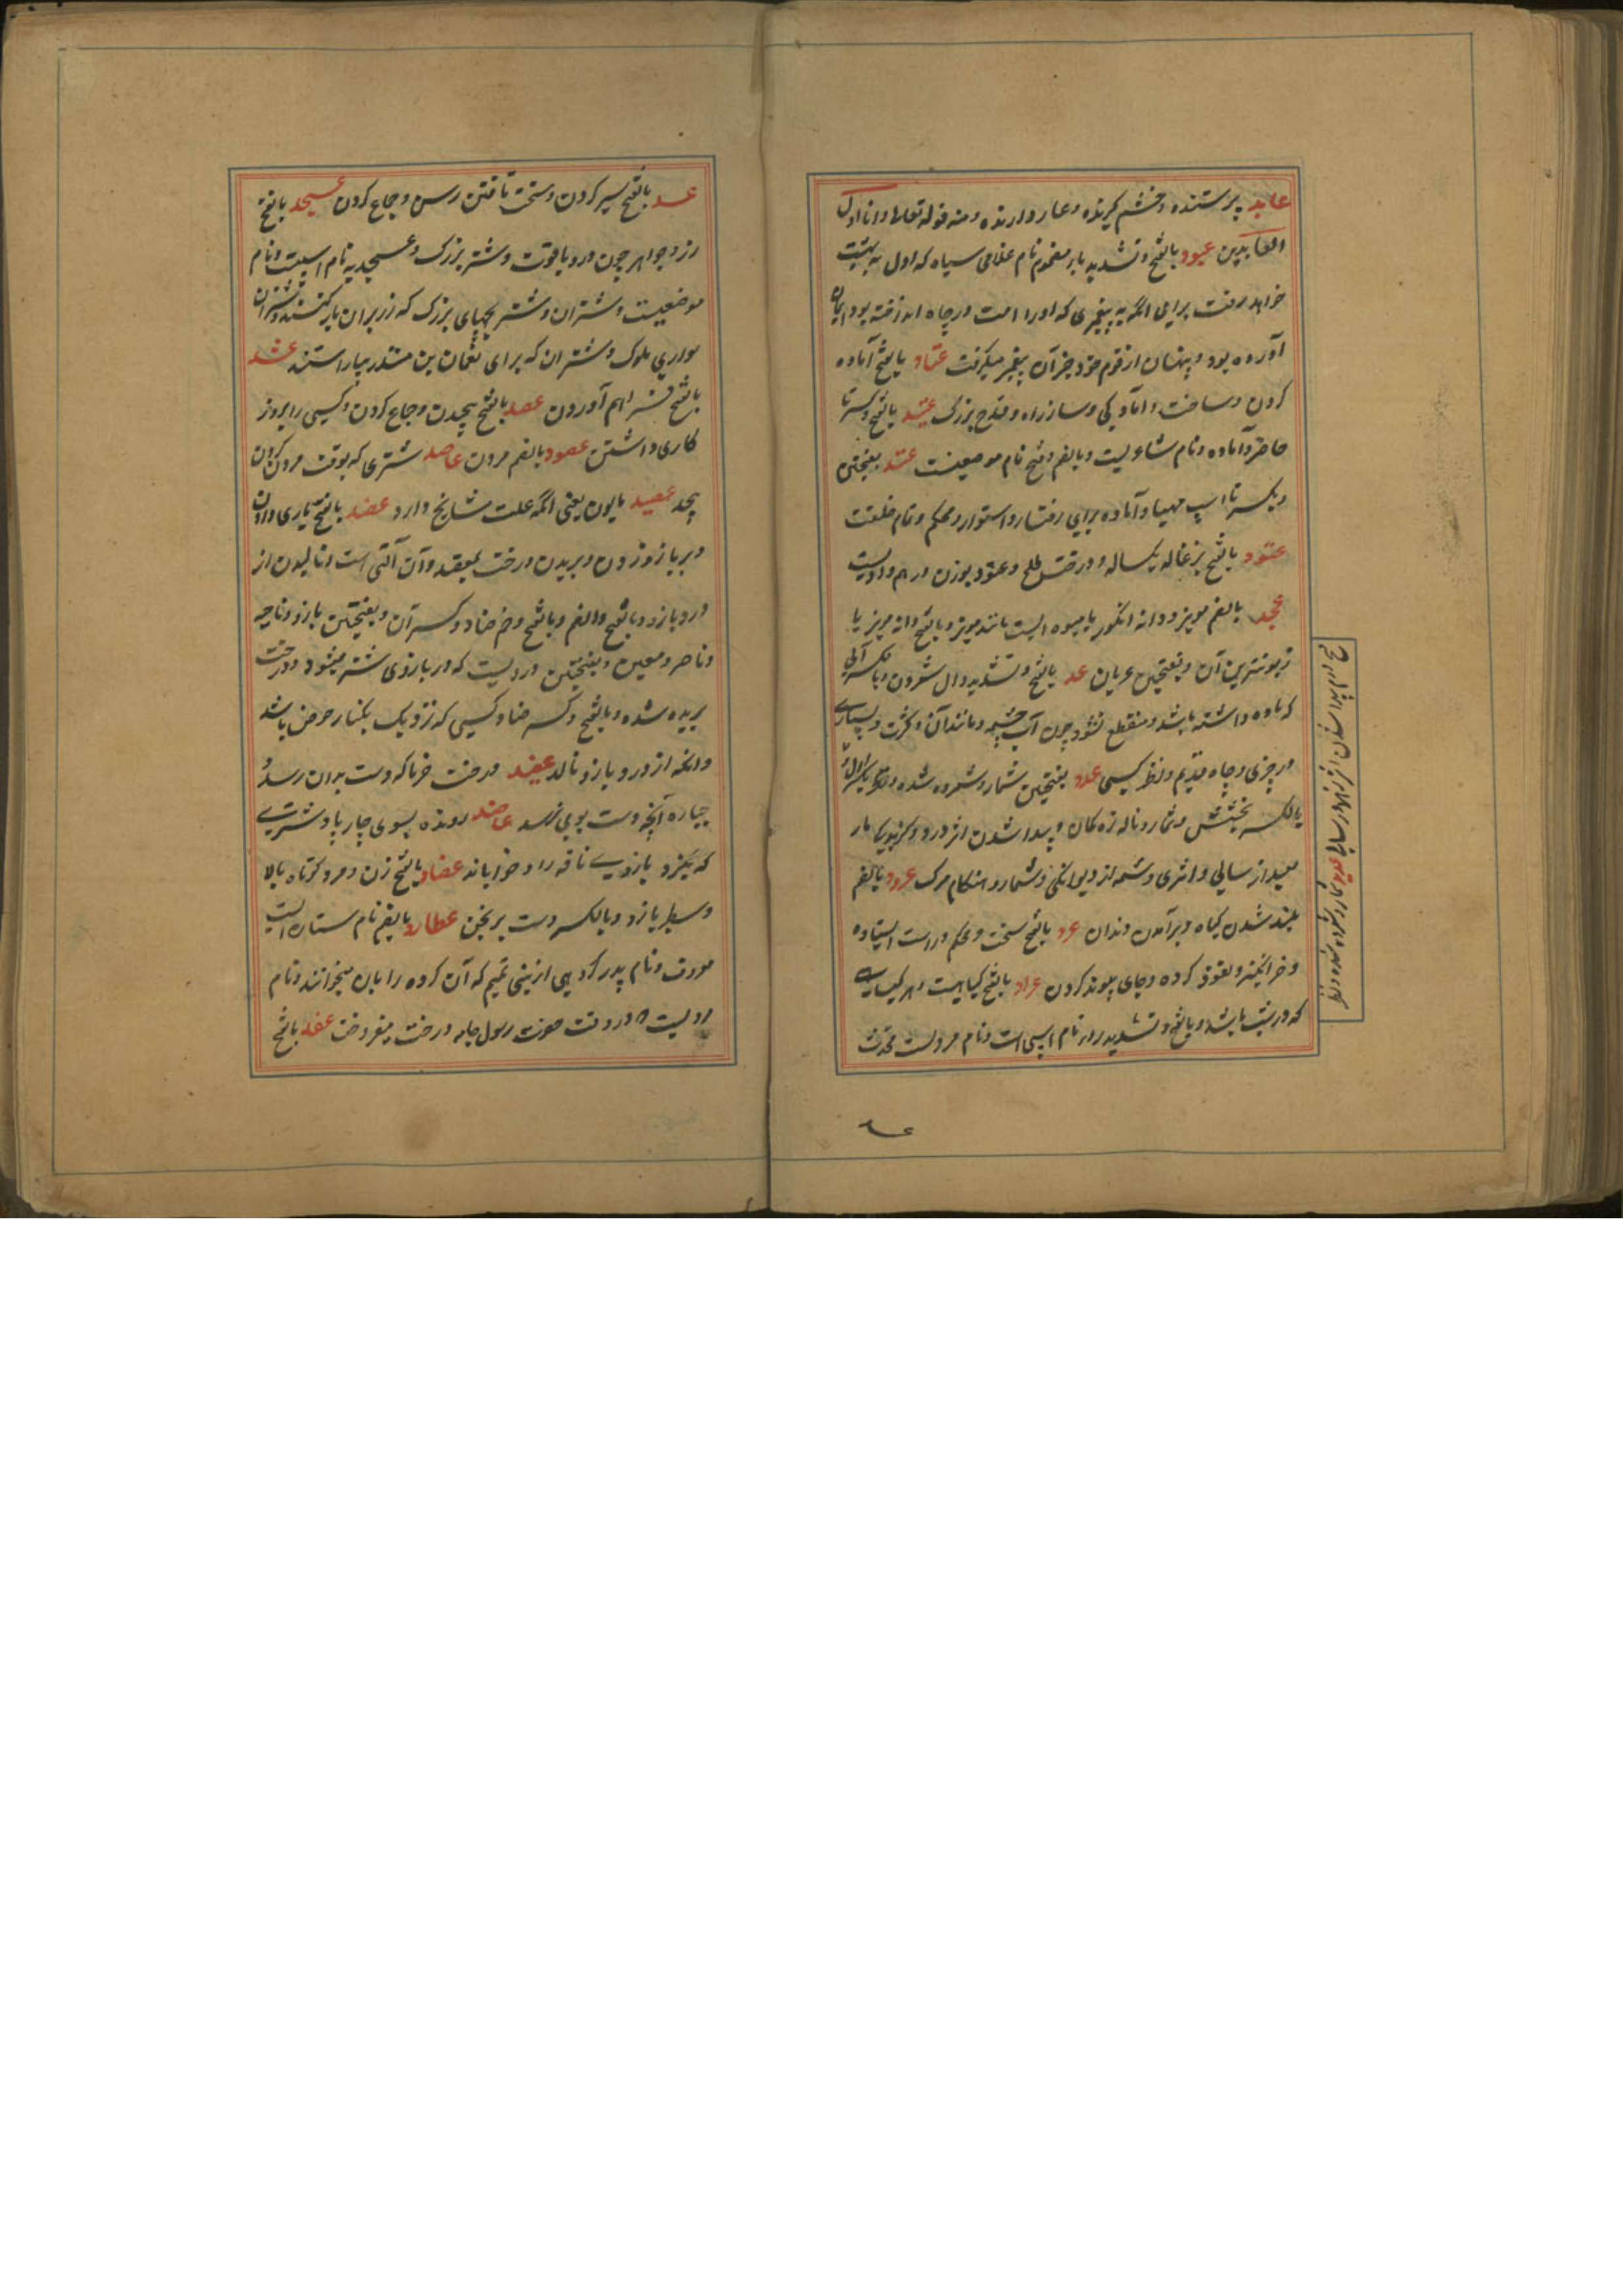 عابد پرستنده و خشم گیرنده و عار دارنده و منه قوله تعالی و انا اول
العابدین عبود بالفتح و تشدید باء مضموم نام غلامی سیاه که اول به بهشت
خواهد رفت برای آنکه به پیغمبری که او را امت در چاه انداخته بود ایمان
آورده بود و پنهان از قوم خود خبر آن پیغمبر میگرفت عتاد بالفتح آماده
کردن و ساخت و آمادگی و ساز راه و قدح بزرگ عتید بالفتح و کسر تا
حاضر و آماده و نام شاعریست و بالضم و فتح نام موضعیست عتد بفتحتین
و بکسر تا اسپ مهیا و آماده برای رفتار و استوار و محکم و تمام خلقت
عتود بالفتح بزغاله یکساله و درخت طلح و عتود بوزن درهم وادیست
عجد بالضم مویز و دانه انگور یا میوه ایست مانند مویز و بالفتح دانه مویز یا
زبونترین آن و بفتحتین غربان عد بالفتح و تشدید دال شمردن و بالکسر آبی
که ماده داشته باشد و منقطع نشود چون آب چشمه و مانند آن و کثرت و بسیاری
در چیزی و چاه قدیم و نظیر کسی عدد بفتحتین شمار و شمرده شده
بالکسر بخشش و شمار و ناله زه کمان و پیدا شدن اثر درد و گزیدگی مار
بعد از سالی و اثری و شمه از دیوانگی و شمار و هنگام مرگ عرود بالضم
بلند شدن گیاه و برآمدن دندان عرد بالفتح سخت و محکم و راست ایستاده
و خر و انگیزه و نعوذ کرده و جای پیوند گردن عراد بالفتح گیاهیست و هر گیاهی
که درشت باشد و بالفتح و تشدید راء نام اسپی است و نام مردیست محدث
عسد
عسد بالفتح سیر کردن و سخت تافتن رسن و جماع کردن عسجد بالفتح
زر و جواهر چون در و یاقوت و شتر بزرگ و عسجدیه نام اسپیست و نام
موضعیست و شتران و شتر بچهای بزرگ که زر بران بار کنند و شتران
سواری ملوک و شتران که برای نعمان بن منذر بیاراستند عشد
بالفتح فراهم آوردن عصد بالفتح پیچیدن و جماع کردن و کسی را بزور
کاری داشتن عصود بالضم مردن عاصد شتری که بوقت مردن گردن
پیچد عصید مابون یعنی آنکه علت مشایخ دارد عضد بالفتح یاری دادن
و بر بازو زدن و بریدن درخت بمعضد و آن آلتی است و نالیدن از
درد بازو و بالفتح و الضم و بالفتح و ضم ضاد و کسر آن و بفتحتین بازو و ناحیه
و ناصر و معین و بفتحتین دردیست که در بازوی شتر میشود و درخت
بریده شده و بالفتح و کسر ضاد کسی که نزدیک بکنار حوض باشد
و آنکه از درد بازو نالد عضید درخت خرما که دست بران رسد و
جباره آنچه دست بوی نرسد عاضد رونده بسوی چارپا و شتری
که بگیرد بازوی ناقه را و خواباند عضاد بالفتح زن و مرد کوتاه بالا
و سطبر بازو و بالکسر دست برنجن عطارد بالضم نام ستاره ایست
معروف و نام پدر گروهی از بنی تمیم که آن گروه را بان میخوانند و نام
مردیست که در وقت حضرت رسول جامه درخت میفروخت عفد بالفتح